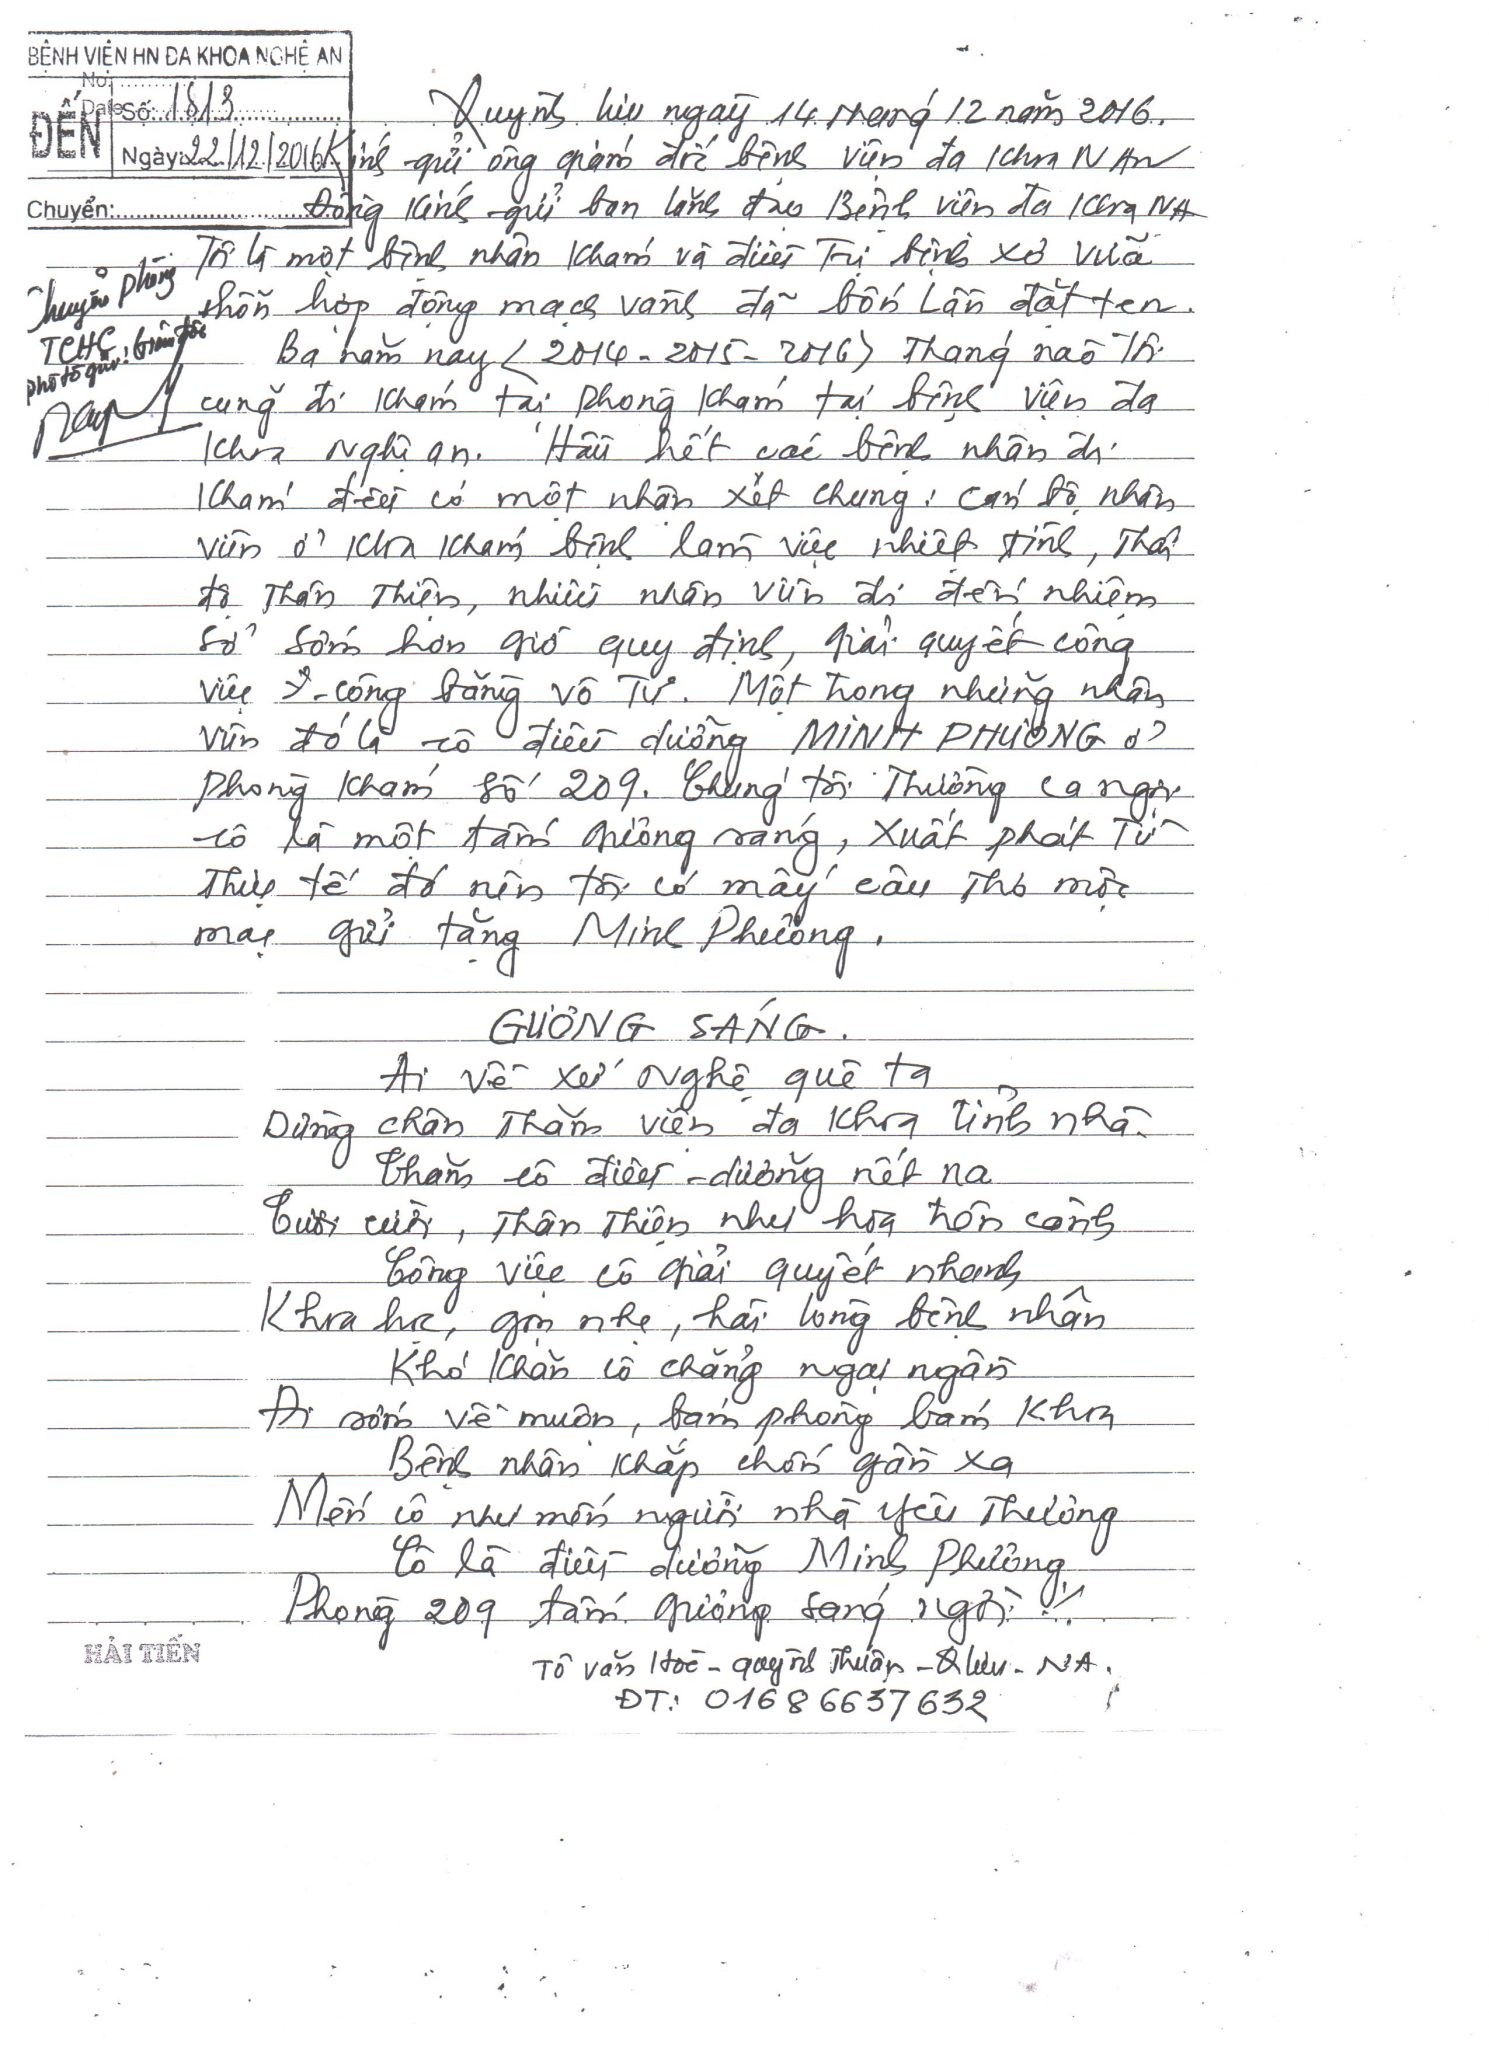 BỆNH VIỆN HN ĐA KHOA NGHỆ AN
No:
Date
ĐẾN
Số: 1813
Ngày: 22/12/2016
Chuyển:
Chuyển phòng
TCHC
phô tô gửi: Giám đốc
Quỳnh lưu ngày 14 tháng 12 năm 2016.
Kính gửi ông giám đốc bệnh viện đa khoa N An
Đồng kính gửi ban lãnh đạo Bệnh viện đa khoa NA
Tôi là một bệnh nhân khám và điều trị bệnh xơ vữa
hỗn hợp động mạch vành đã bốn lần đặt ten.
Ba năm nay (2014-2015-2016) Tháng nào Tôi
cũng đi khám tại phòng khám tại bệnh viện đa
khoa nghệ an. Hầu hết các bệnh nhân đi
khám đều có một nhận xét chung: cán bộ nhân
viên ở khoa khám bệnh làm việc nhiệt tình, Thái
độ Thân Thiện, nhiều nhân viên đi đến nhiệm
sở sớm hơn giờ quy định, giải quyết công
việc công bằng vô Tư. Một trong những nhân
viên đó là cô điều dưỡng MINH PHƯƠNG ở
phòng khám số 209. Chúng tôi Thường ca ngợi
cô là một tấm gương sáng, xuất phát Từ
Thực tế đó nên tôi có mấy câu Thơ mộc
mạc gửi tặng Minh Phương.
GƯƠNG SÁNG.
Ai về xứ Nghệ quê ta
Dừng chân Thăm viện đa khoa tỉnh nhà
Thăm cô điều dưỡng nết na
Tươi cười, Thân Thiện như hoa trên cành
Công việc cô giải quyết nhanh
Khoa học, gọn nhẹ, hài lòng bệnh nhân
Khó khăn cô chẳng ngại ngần
Đi sớm về muộn, bám phòng bám khoa
Bệnh nhân khắp chốn gần xa
Mến cô như mến người nhà yêu Thương
Cô là điều dưỡng Minh Phương
Phòng 209 tấm gương sáng ngời!!
HẢI TIẾN
Tô Văn Hoè - Quỳnh Thuận - Q lưu - NA.
ĐT: 01686637632